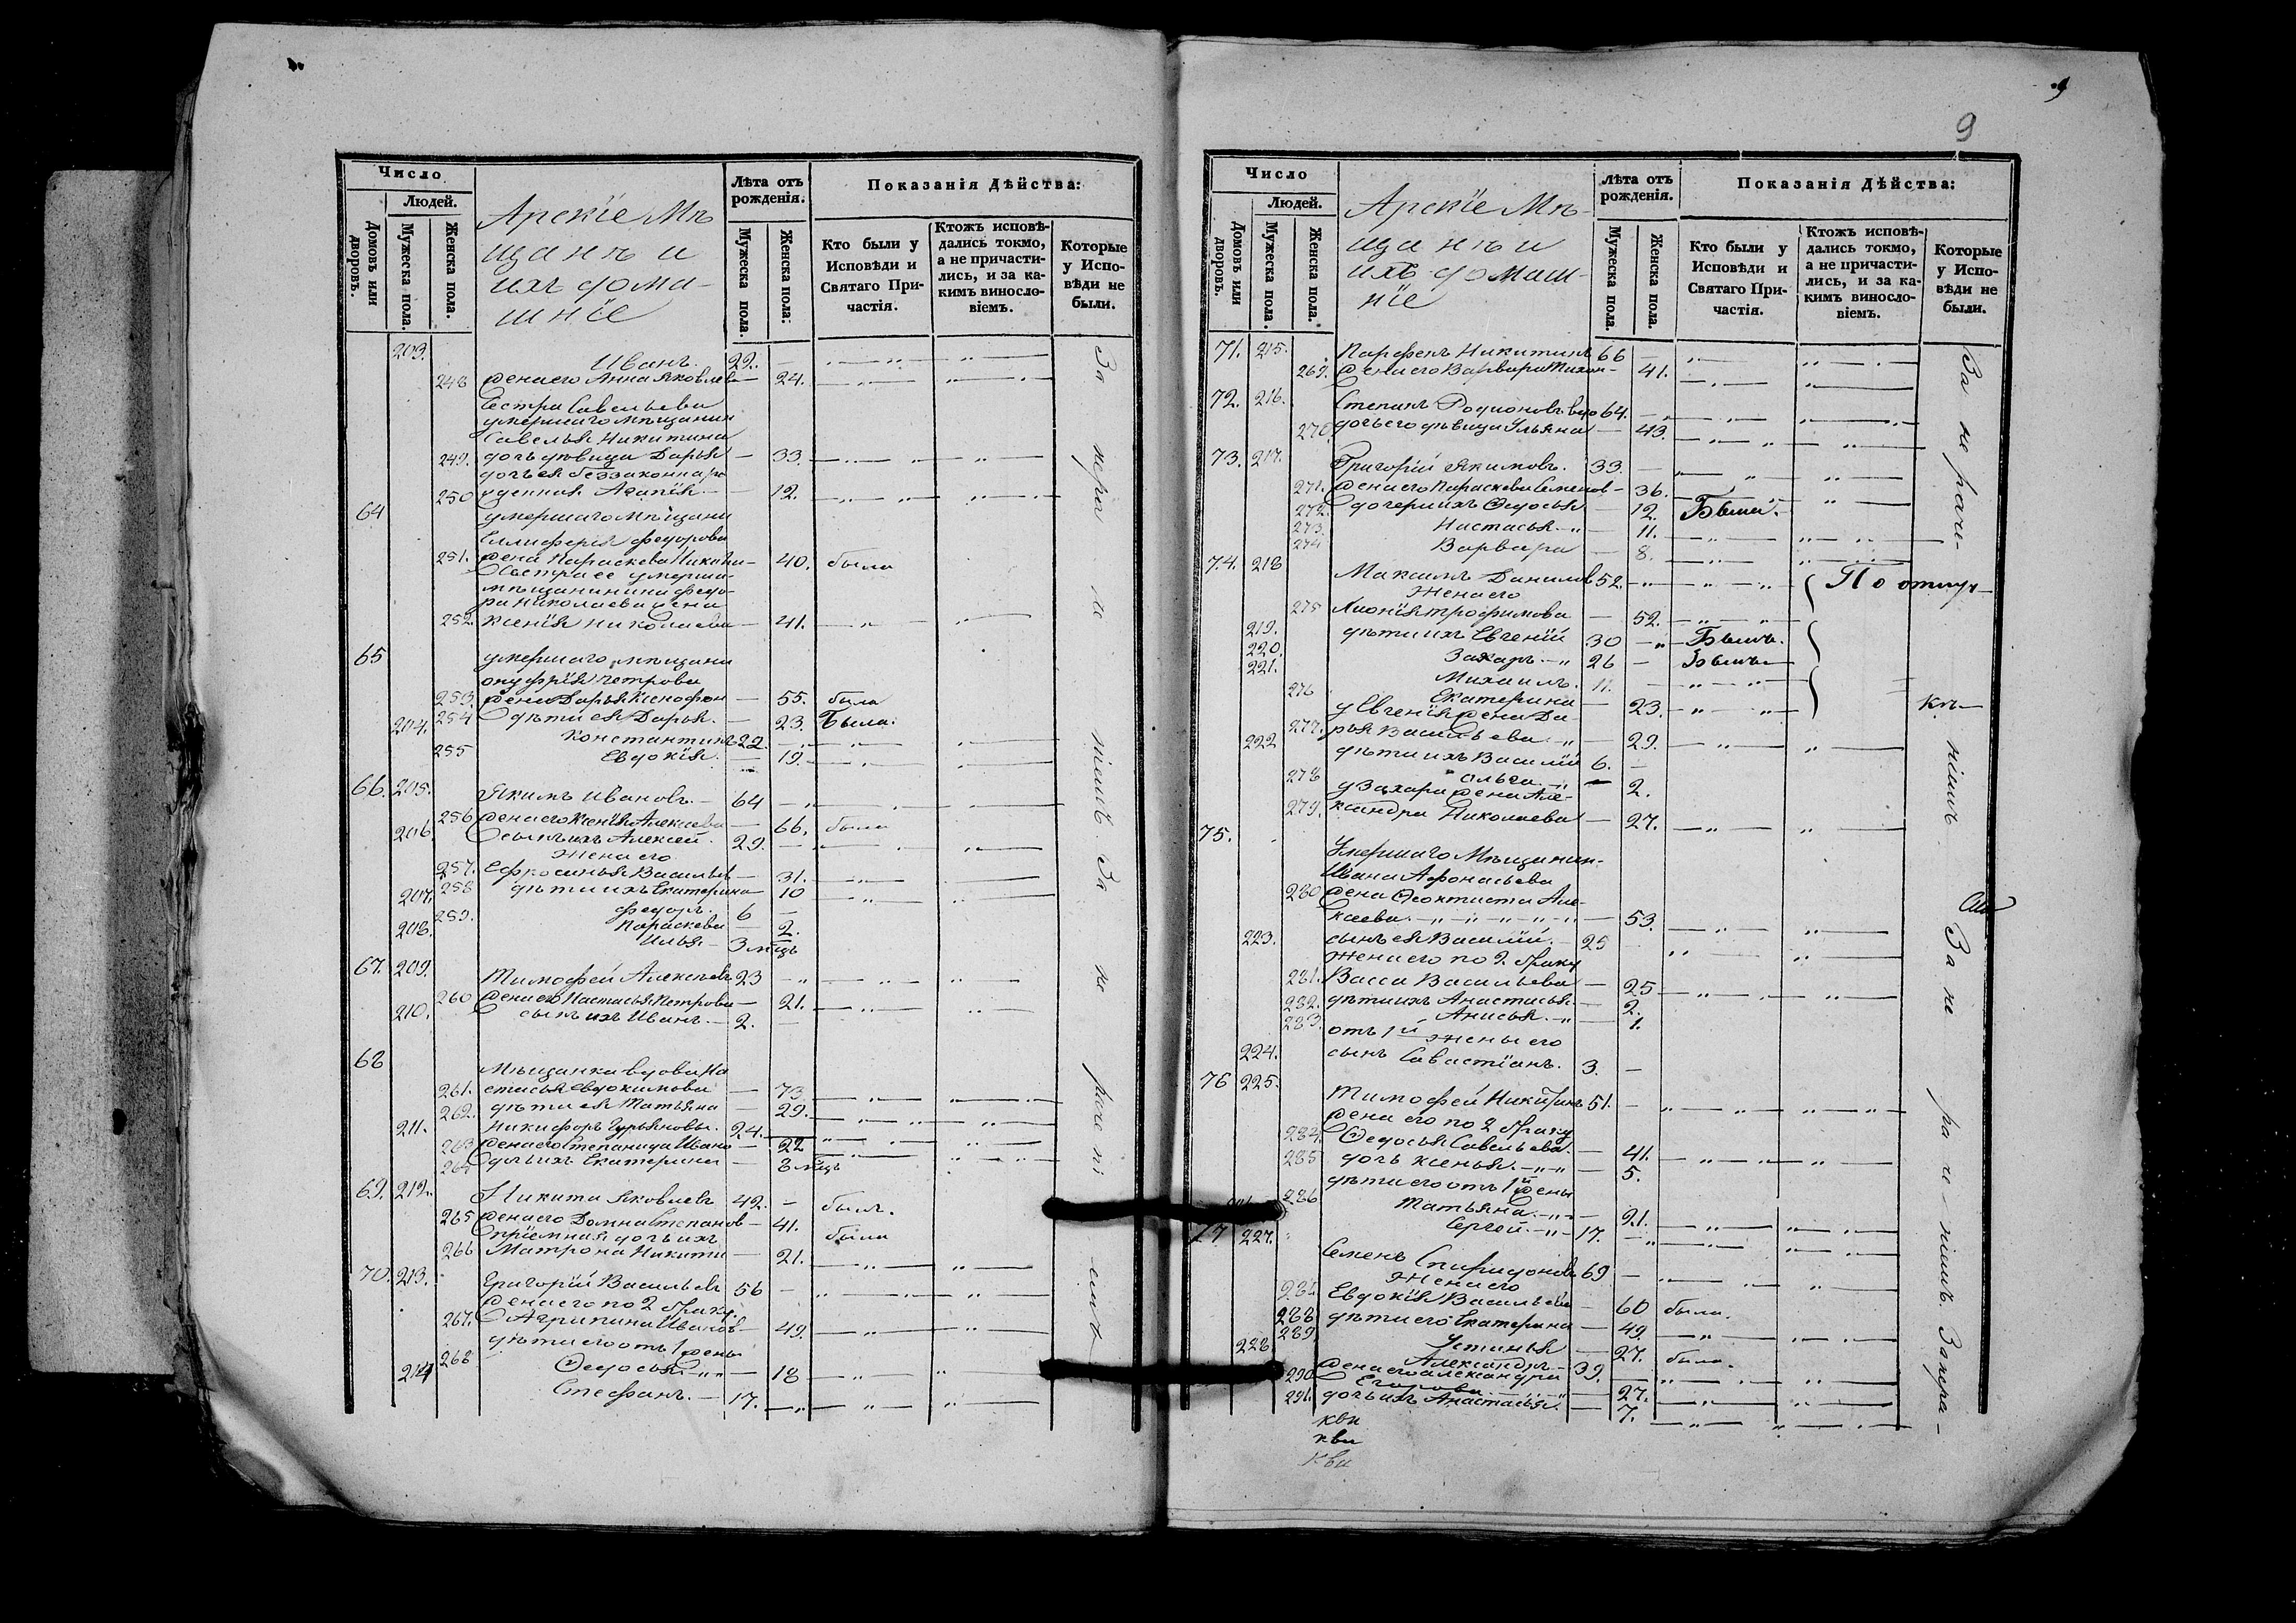 Число
Людей.
Домовъ или дворовъ.
Мужеска пола.
Женска пола.
Арскіе Мѣ
щанѣ и
ихъ дома-
шніе
Лѣта отъ рожденія.
Мужеска пола.
Женска пола.
Показанія Дѣйства:
Кто были у Исповѣди и Святаго Причастія.
Ктожъ исповѣдались токмо, а не причастились, и за какимъ винословіемъ.
Которые у Исповѣди не были.
203. Иванъ. 22.
248 жена его Анна Яковлева — 24.
Сестра Савельева
умершаго мѣщанин
Савелья Никитина
249. дочь дѣвица Дарья — 33.
дочь ея беззаконно ро
250 жденная Агапія — 12.
64 умершаго мѣщани
Елиферія Федорова
251. жена Параскева Никити — 40. была
Сестра ее умерша-
мѣщанинина федо-
ра Николаева жена
252. Ксенія Николаева — 41.
65 умершаго мѣщани
онуфрія петрова
253. жена Дарья Ксенофон — 55. была
254 дѣти ея Дарья. — 23. Была.
204. Константинъ 22.
255 Евдокія. — 19.
66. 205. Якимъ Ивановъ. — 64
256 жена его Ксенія Алексеева — 66. была
206. сынъ ихъ Алексей. 29.
жена его
257. Ефросинья Васильев — 31.
258 дѣти ихъ Екатерина — 10
207. федоръ. 6
259. Параскева — 2.
208. Илья — 3 мѣцъ
67. 209. Тимофей Алексѣевъ 23
260 жена его Настасья Петрова — 21.
210. сынъ ихъ Иванъ. — 2.
68 Мѣщанка вдова На
261. стасья Евдокимова — 73
262. дѣти ея Татьяна — 29.
211. Никифоръ Гурьяновъ. 24.
263 жена его Степанида Ивано — 22
264 дочь ихъ Екатерина — 3 мѣцъ
69. 212. Никита Яковлевъ 42. — былъ.
265 жена его Домна Степанов — 41. была
пріемная дочь ихъ
266 Матрона Никити — 21.
70. 213. Григорій Васильевъ 56
жена его по 2 браку.
267. Агрипина Иванов — 49.
дѣти его отъ 1 жены
268 Ѳедосья — 18
214 Стефанъ. — 17.
За нера че ніемъ За не раче ні емъ
9
Число
Людей.
Домовъ или дворовъ.
Мужеска пола.
Женска пола.
Арскіе Мѣ-
щанѣ и
ихъ домаш-
ніе
Лѣта отъ рожденія.
Мужеска пола.
Женска пола.
Показанія Дѣйства:
Кто были у Исповѣди и Святаго Причастія.
Ктожъ исповѣдались токмо, а не причастились, и за какимъ винословіемъ.
Которые у Исповѣди не были.
71. 215. Парфенъ Никитинъ 66
269. жена его Варвара Тихон — 41.
72. 216. Степанъ Родионовъ вдо 64.
270. дочь его дѣвица Ульяна — 43.
73. 217. Григорій Якимовъ. 33.
271. жена его Параскева Семенов — 36.
272. дочери ихъ Ѳедосья — 12. Была.
273. Настасья. — 11.
274 Варвара — 8.
74. 218 Максимъ Данилов 52. По отлуч—
Жена его
275 Хионія трофимова — 52.
219. дѣти ихъ Евгеній 30 — Былъ.
220. Захаръ. 26 — Былъ
221. Михаилъ. 11.
276 Екатерина — 23. кѣ—
у Евгенія жена Да-
277. рья Васильева. — 29.
222 дѣти ихъ Василій 6.
278 ольга — 2.
у Захара жена Але-
279. ксандра Николаева — 27.
75. Умершаго Мѣщанин-
Ивана Афонасьева
280 жена Ѳеоктиста Але-
ксева. — 53.
223. сынъ ея Василій. 25
жена его по 2. браку
281. Васса Васильева — 25
282. дѣти ихъ Анастасья. — 2.
283. Анисья. — 1.
отъ 1й жены его
224. сынъ Савастіанъ. 3.
76 225. Тимофей Никитинъ 51.
жена его по 2 браку
284. Ѳедосья Савельева. — 41.
285 дочь ксенья. — 5.
дѣти его отъ 1й жены
286 Татьяна. — 21.
Сергей. — 17.
77 227. Семенъ Спиридоновъ 69
жена его
Евдокія Васильева — 60 была.
288 дѣти его Екатерина — 49.
289. Устинья — 27. была.
228 Александръ — 39.
290 жена его александра
Егорова — 27.
291. дочь ихъ Анастасья. — 7.
кви
кви
кви
За не раче- ніимъ За не ра че- ніимъ.